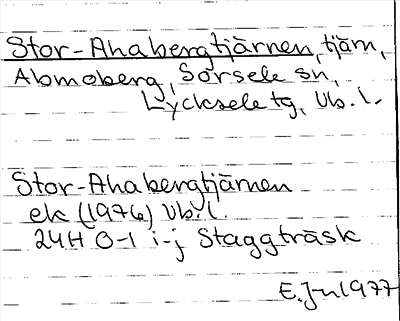 Stor-Ahabergtjärnen, tjärn,
Abmoberg, Sorsele sn,
Lycksele tg, Vb. l.
Stor-Ahabergtjärnen
ek (1976) Vb. l.
24H 0-1 i-j Staggträsk
E. Jn 1977